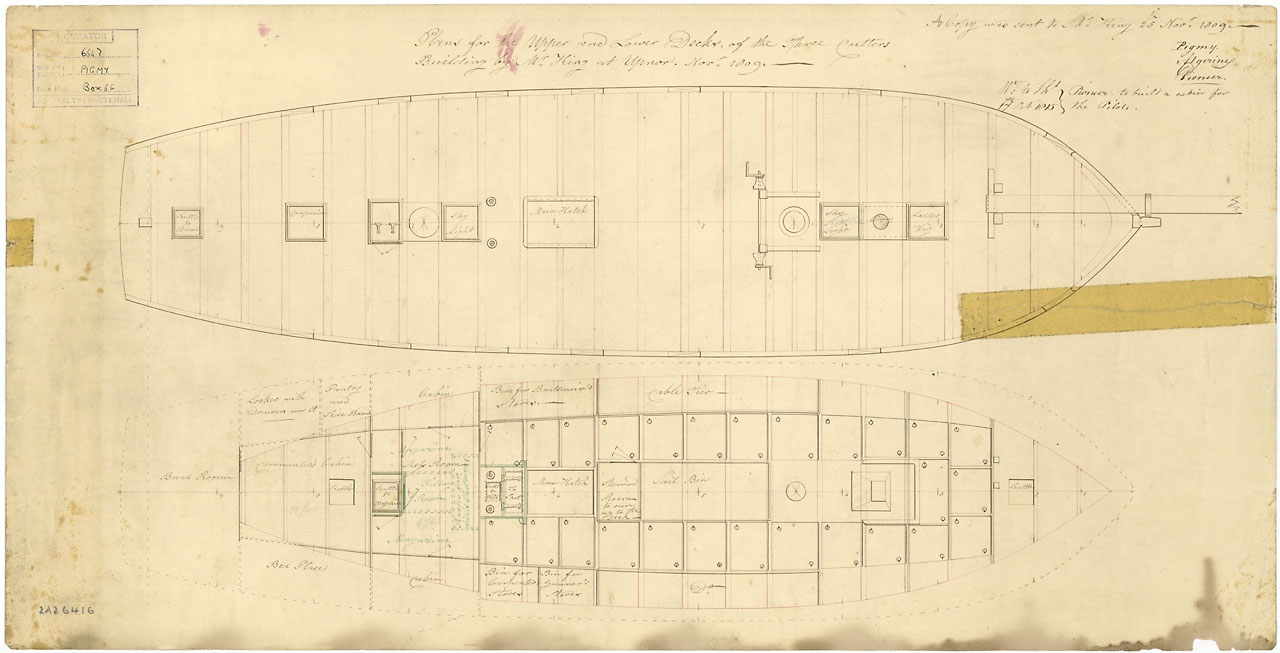 A Copy was sent to Mr. King 25th Novr. 1809.
Plans for the Upper and Lower Decks, of the Three Cutters
Building by Mr. King at Upnor. Novr. 1809.
Pigmy.
Algerine
Pioneer.
Pioneer. to build a cabin for
the Pilots.
6627
PIGMY
Box 65
ADMIRALTY WHITEHALL
Scuttle
to
Companion
Sky
Light
Main Hatch
Ladder
Way
Locker with
Drawers over it
Pantry
and
Side Board
Cabin
Bin for Boatswain's
Stores.
Cable Tier
Bread Room
Commander's Cabin
Scuttle
Scuttle
to
Magazine
Room
Magazine
Main Hatch
Steward
Room
Sail Bin
Scuttle
Bed Place
Magazine
Cabin
Bin for
Carpenter's
Stores
Bin for
Gunner's
Stores
Do.
ZAZ6416